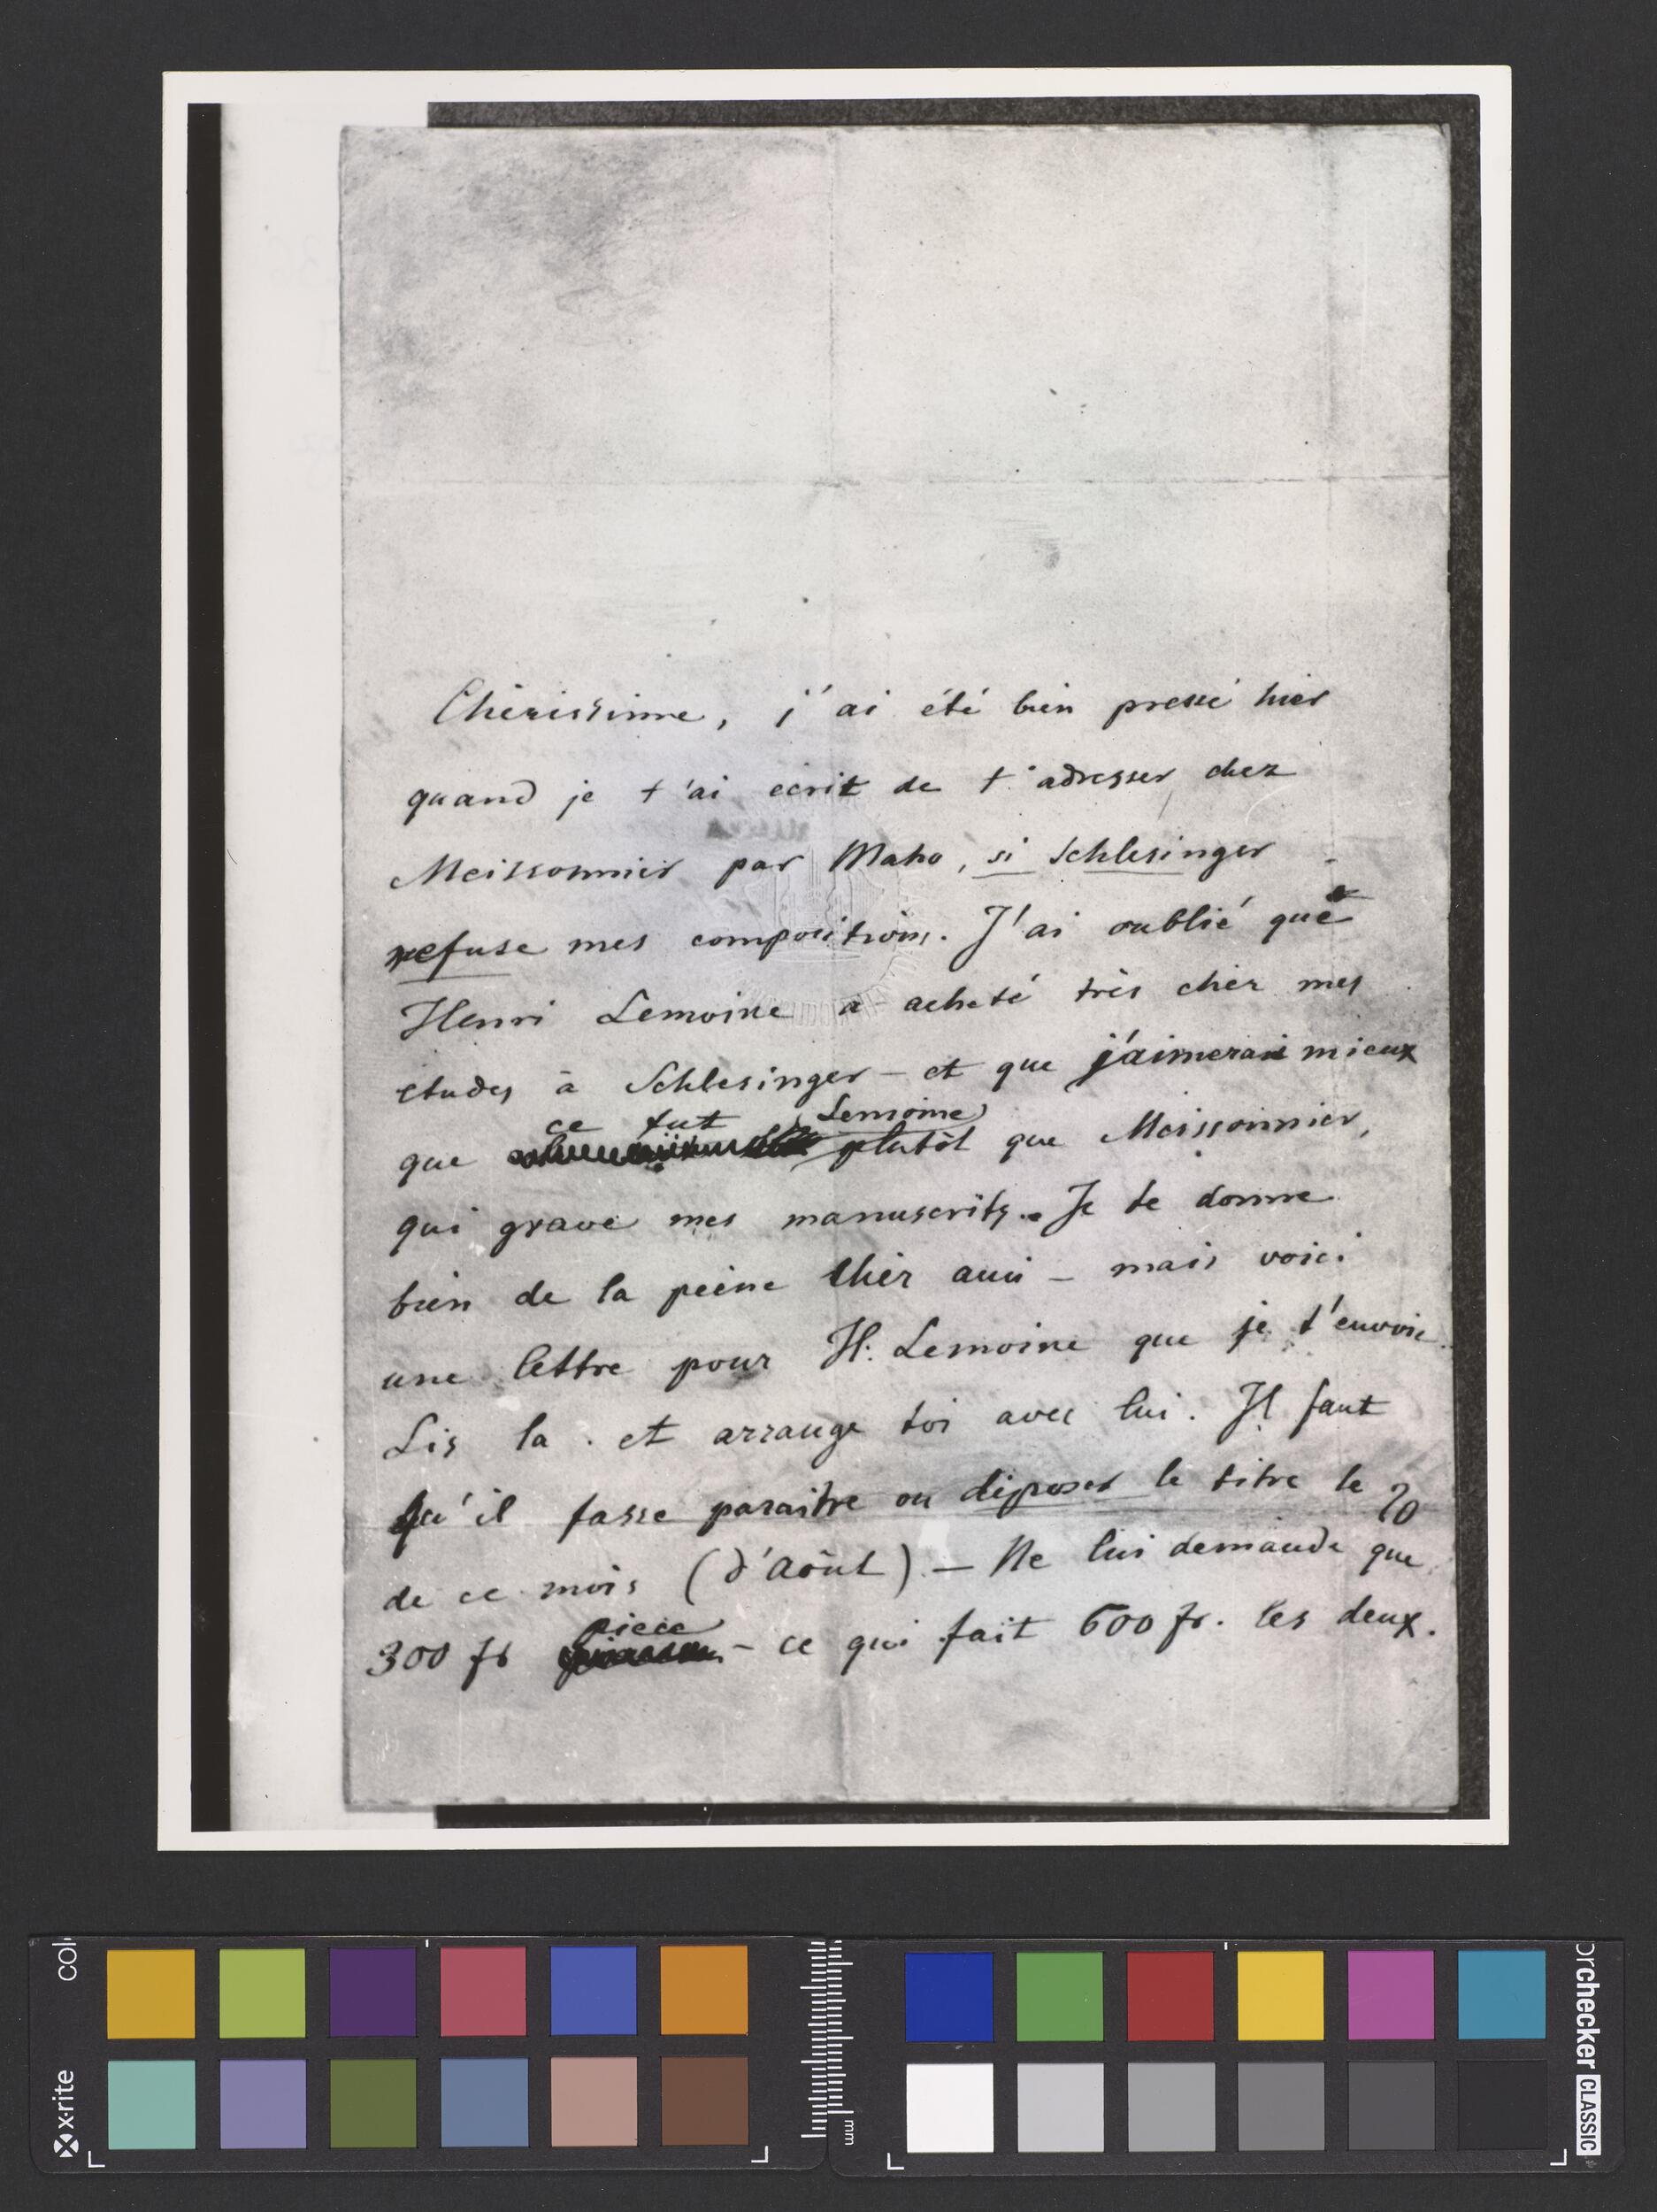 Chérissime, j'ai été bien pressé hier
quand je t'ai écrit de t'adresser chez
Meissonnier par Maho, si Schlesinger
refuse mes compositions. J'ai oublié que
Henri Lemoine a acheté très cher mes
études à Schlesinger – et que j'aimerai mieux
ce fut Lemoine
que plutôt que Meissonnier,
qui grave mes manuscrits. Je te donne
bien de la peine cher ami – mais voici
une lettre pour H. Lemoine que je t'envoie.
Lis la. et arrange toi avec lui. Il faut
qu'il fasse paraitre ou déposer le titre le
de ce mois (d'Aôut) – Ne lui demande que
pièce
300 fr – ce qui fait 600 fr. les deux.
colo
x·rite
mm
orchecker CLASSIC